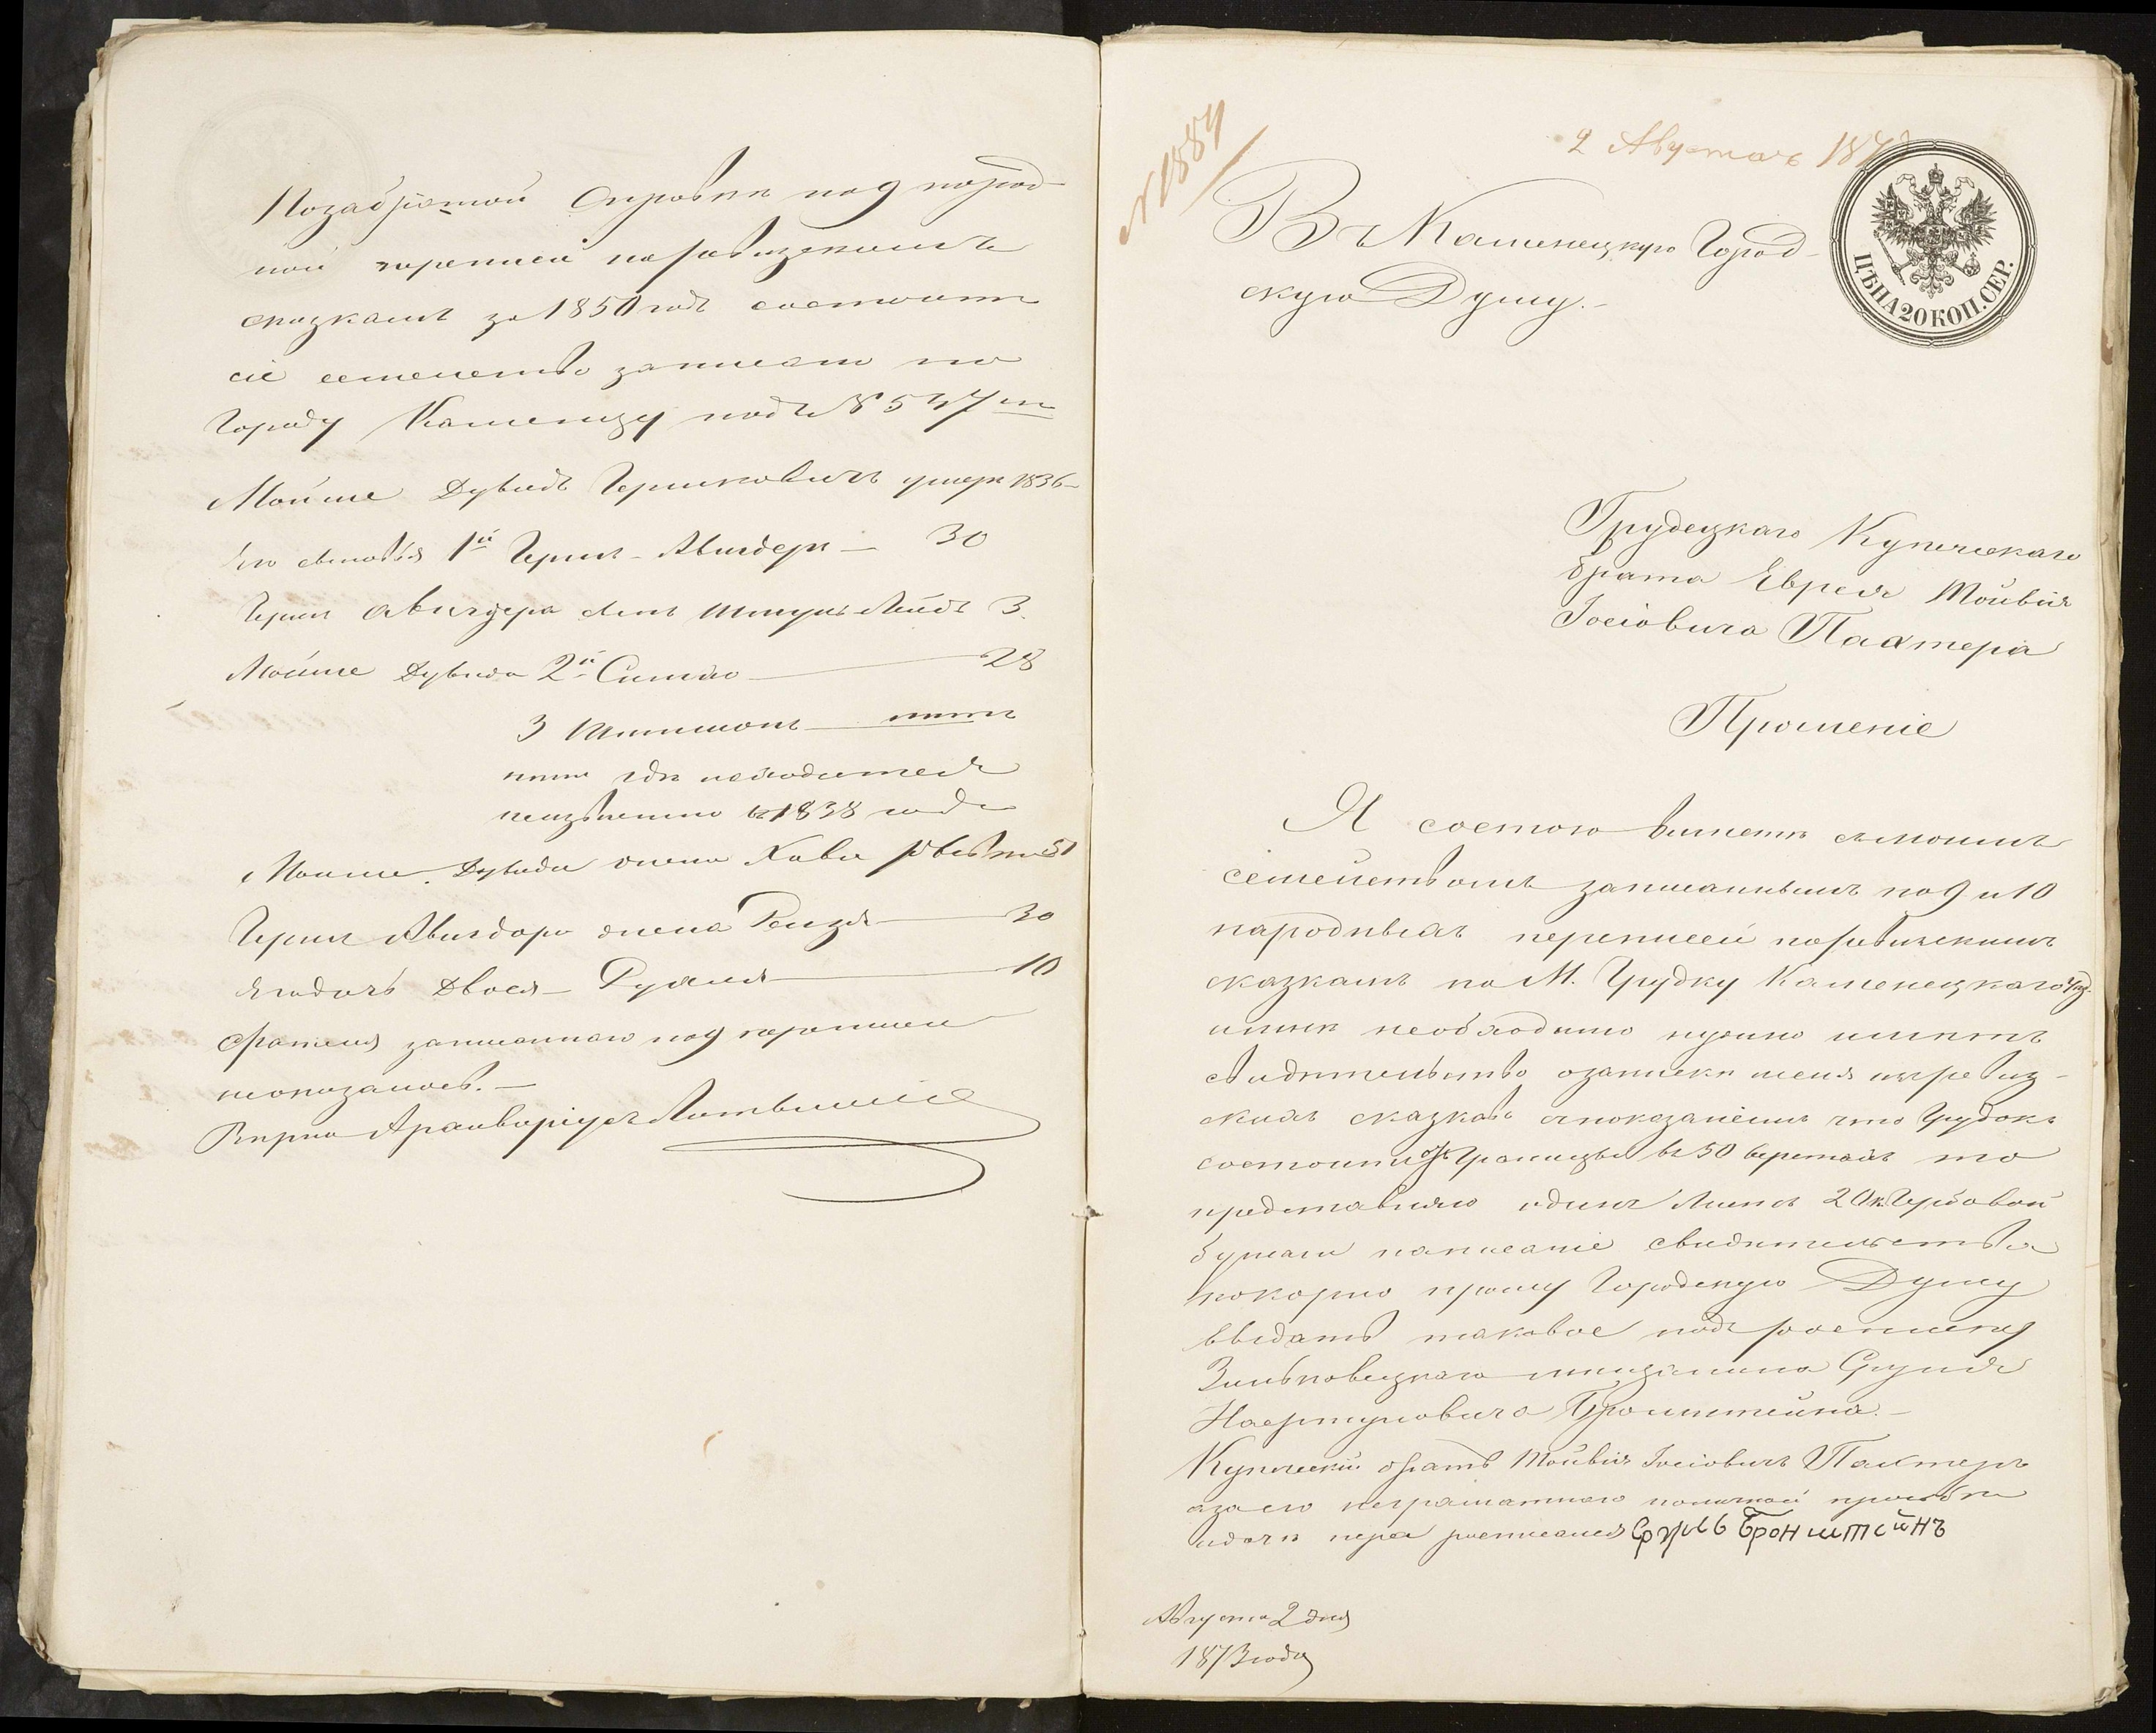 По забратой Справки по 9 народ-
ной переписи по ревизскимъ
сказкамъ за 1850 годъ состоитъ
сіе семейство записано по
Городу Каменцу подъ № 547 мъ
Мойше Дувидъ Гершковичъ умеръ 1836
Его сыновья 1й Герш-Авигдеръ — 30
Герша Авигдера сынъ Шмуль Лейбъ 3.
Мойше Дувида 2й Симхо — 28
3 Шимшонъ — нѣтъ
нѣтъ гдѣ находится
неизвѣстно въ 1838 года
Мойше Дувида жена Хава 51
Герша Авигдора жена Рейзя — 30
Ягодочь Двося-Рухля — 10
братомъ записаннаго по 9 переписи
неоказалось. —
Вѣрно Архиваріусъ
№ 1884
2 Августа 187
Въ Каменецкую Город-
скую Думу. —
ЦѢНА 20 КОП. СЕР.
Грудецкаго Купеческаго
брата Еврея Тойвія
Іосіовича Пахтера
Прошеніе
Я состою вместѣ съ моимъ
семействомъ записаннымъ по 9 и 10
народныхъ переписей по ревизскимъ
сказкамъ по М. Грудку Каменецкаго Уѣз.
имнѣ необходимо нужно имѣть
свидѣтельство о записки меня въ ревиз-
скихъ сказкахъ с показаніемъ что Грудокъ
состоитъ отъ Границы въ 50 верстахъ то
представляю одинъ листъ 20 к. Гербовой
бумаги написаніе свидѣтельства
покорно прошу Городскую Думу
выдать таковое подъ росписку
Зиньковецкаго мещанина Сруля
Бронштейна. —
Купеческій братъ Тойвія Іосіовичъ Пахтеръ
а за его неграматнаго по личной прозьбѣ
идачѣ пера росписался Сруль Бронштейнъ
Августа 2 дня
1873 года